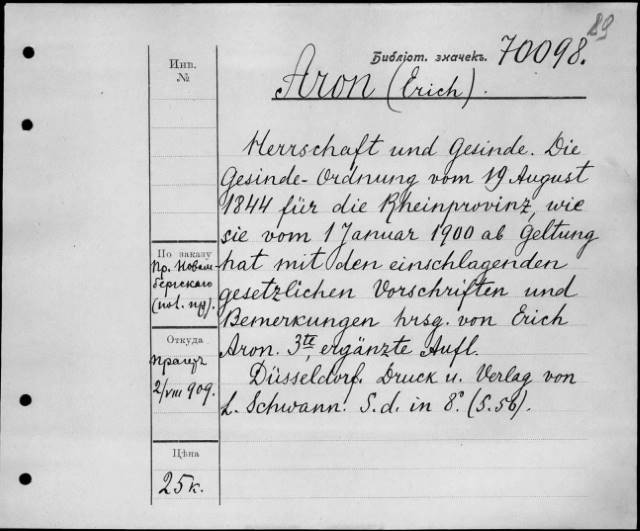 89
Библіот. значекъ. 70098.
Инв.
№
Aron (Erich).
Herrschaft und Gesinde. Die
Gesinde-Ordnung vom 19 August
1844 für die Rheinprovinz, wie
sie vom 1 Januar 1900 ab Geltung
hat mit den einschlagenden
gesetzlichen Vorschriften und
Bemerkungen hrsg. von Erich
Aron. 3te, ergänzte Aufl.
Düsseldorf. Druck u. Verlag von
L. Schwann. S. d. in 8° (S. 56).
По заказу
Пр.
бергскаго
Откуда
2/VIII 909.
Цѣна
25 к.